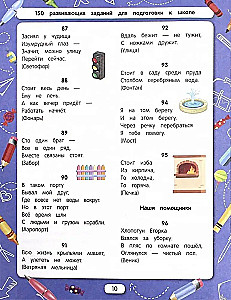 150 развивающих заданий для подготовки к школе
87
Заснял у чудища
Изумрудный глаз —
Значит, можно улицу
Перейти сейчас.
(Светофор)
88
Стоят весь день —
им не лень.
А как вечер придёт —
Работать начнёт.
(Фонарь)
89
Сто один брат —
Все в один ряд.
Вместе связаны стоят
(Забор)
90
В таком порту
Бывал мой друг,
Где вовсе нет воды вокруг.
Но в этот порт
Всё время шли
С людьми и грузом корабли.
(Аэропорт)
91
Всю жизнь крыльями машет,
А улететь не может
(Ветряная мельница)
92
Вдаль бежит — не тужит,
С ножками дружит.
(Улица)
93
Стоит в саду среди пруда
Столбом серебряным вода.
(Фонтан)
94
Я на том берегу
И на этом берегу.
Через речку перебраться
Я тебе помогу.
(Мост)
95
Стоит изба
Из кирпича,
То холодна,
То горяча.
(Печка)
Наши помощники
96
Хлопотун Егорка
Взялся за уборку
В пляс по комнате пошёл,
Оглянулся — чистый пол.
(Веник)
10